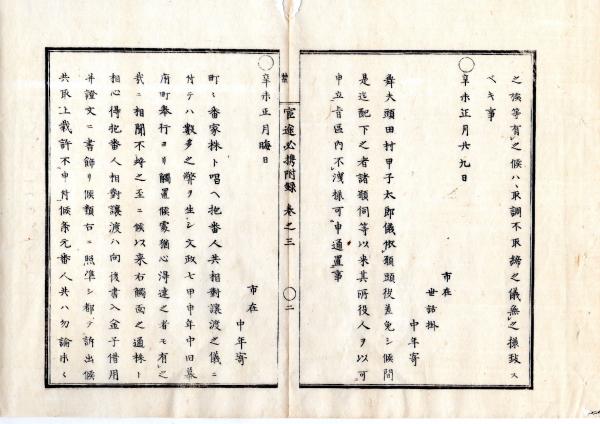 之族等有之候ハヽ取調不取締之儀無之様致ス
ベキ事
〇辛未正月廿九日
市在
世話掛
中年寄
舞大頭田村甲子太郎儀類頭役差免シ候間
是迄配下之者諸願伺等以来其所役人ヲ以可
申立旨區内不洩様可申通置事
宣途必携附録 巻之三 〇二
〇辛未正月晦日
市在
中年寄
町々番家株ト唱ヘ抱番人共相對讓渡之儀ニ
付テハ數多之弊ヲ生シ文政七甲申年中旧幕
府町奉行ヨリ觸置候處猶心得違之者モ有之
哉ニ相聞不埒之至ニ候以来右觸面之通株ト
相心得抱番人相對讓渡ハ向後書入金子借用
并證文ニ書餝リ候類右ニ照準シ都テ訴出候
共取上裁許不申付候条元番人共ハ勿論末々